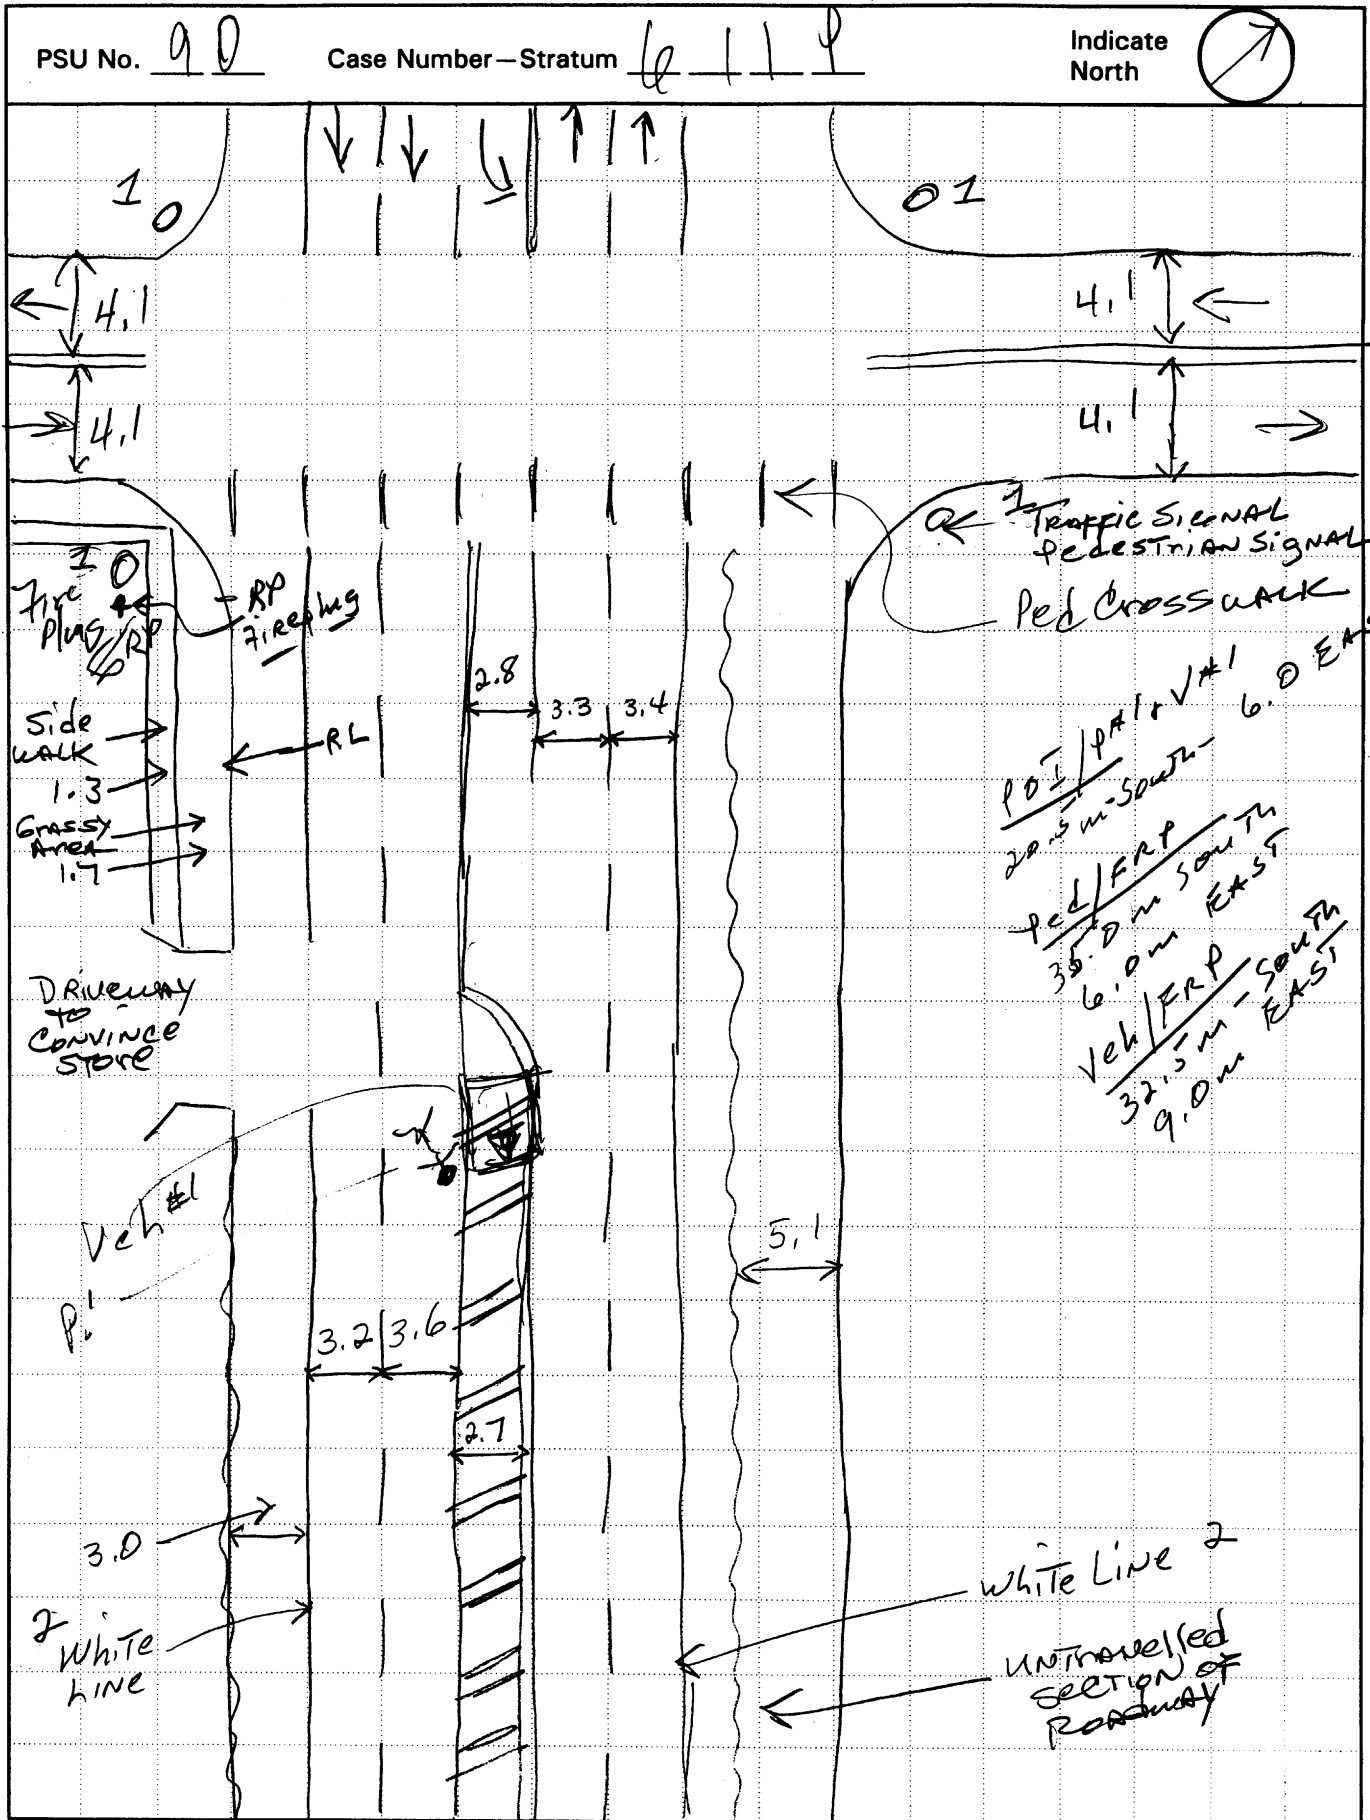 PSU No. 90 Case Number—Stratum 611P Indicate North
1
1
4.1
4.1
4.1
4.1
1
TRAFFIC SIGNAL
PEDESTRIAN SIGNAL
Ped CROSSWALK
1
Fire
Plug
RP
RP
Fireplug
2.8
3.3
3.4
Side
WALK
1.3
RL
GRASSY
AREA
1.7
POI/P#1 & V#1
20.5 m-South-
6.0 EAS
Ped/FRP
35.0 m South
6.0 m EAST
Veh/FRP
32.5 m - South
9.0 m EAST
DRIVEWAY
TO
CONVINCE
STORE
Veh #1
P.1
5.1
3.2
3.6
2.7
3.0
2
White
LINE
White LINE 2
UNTRAVELLED
SECTION OF
ROADWAY